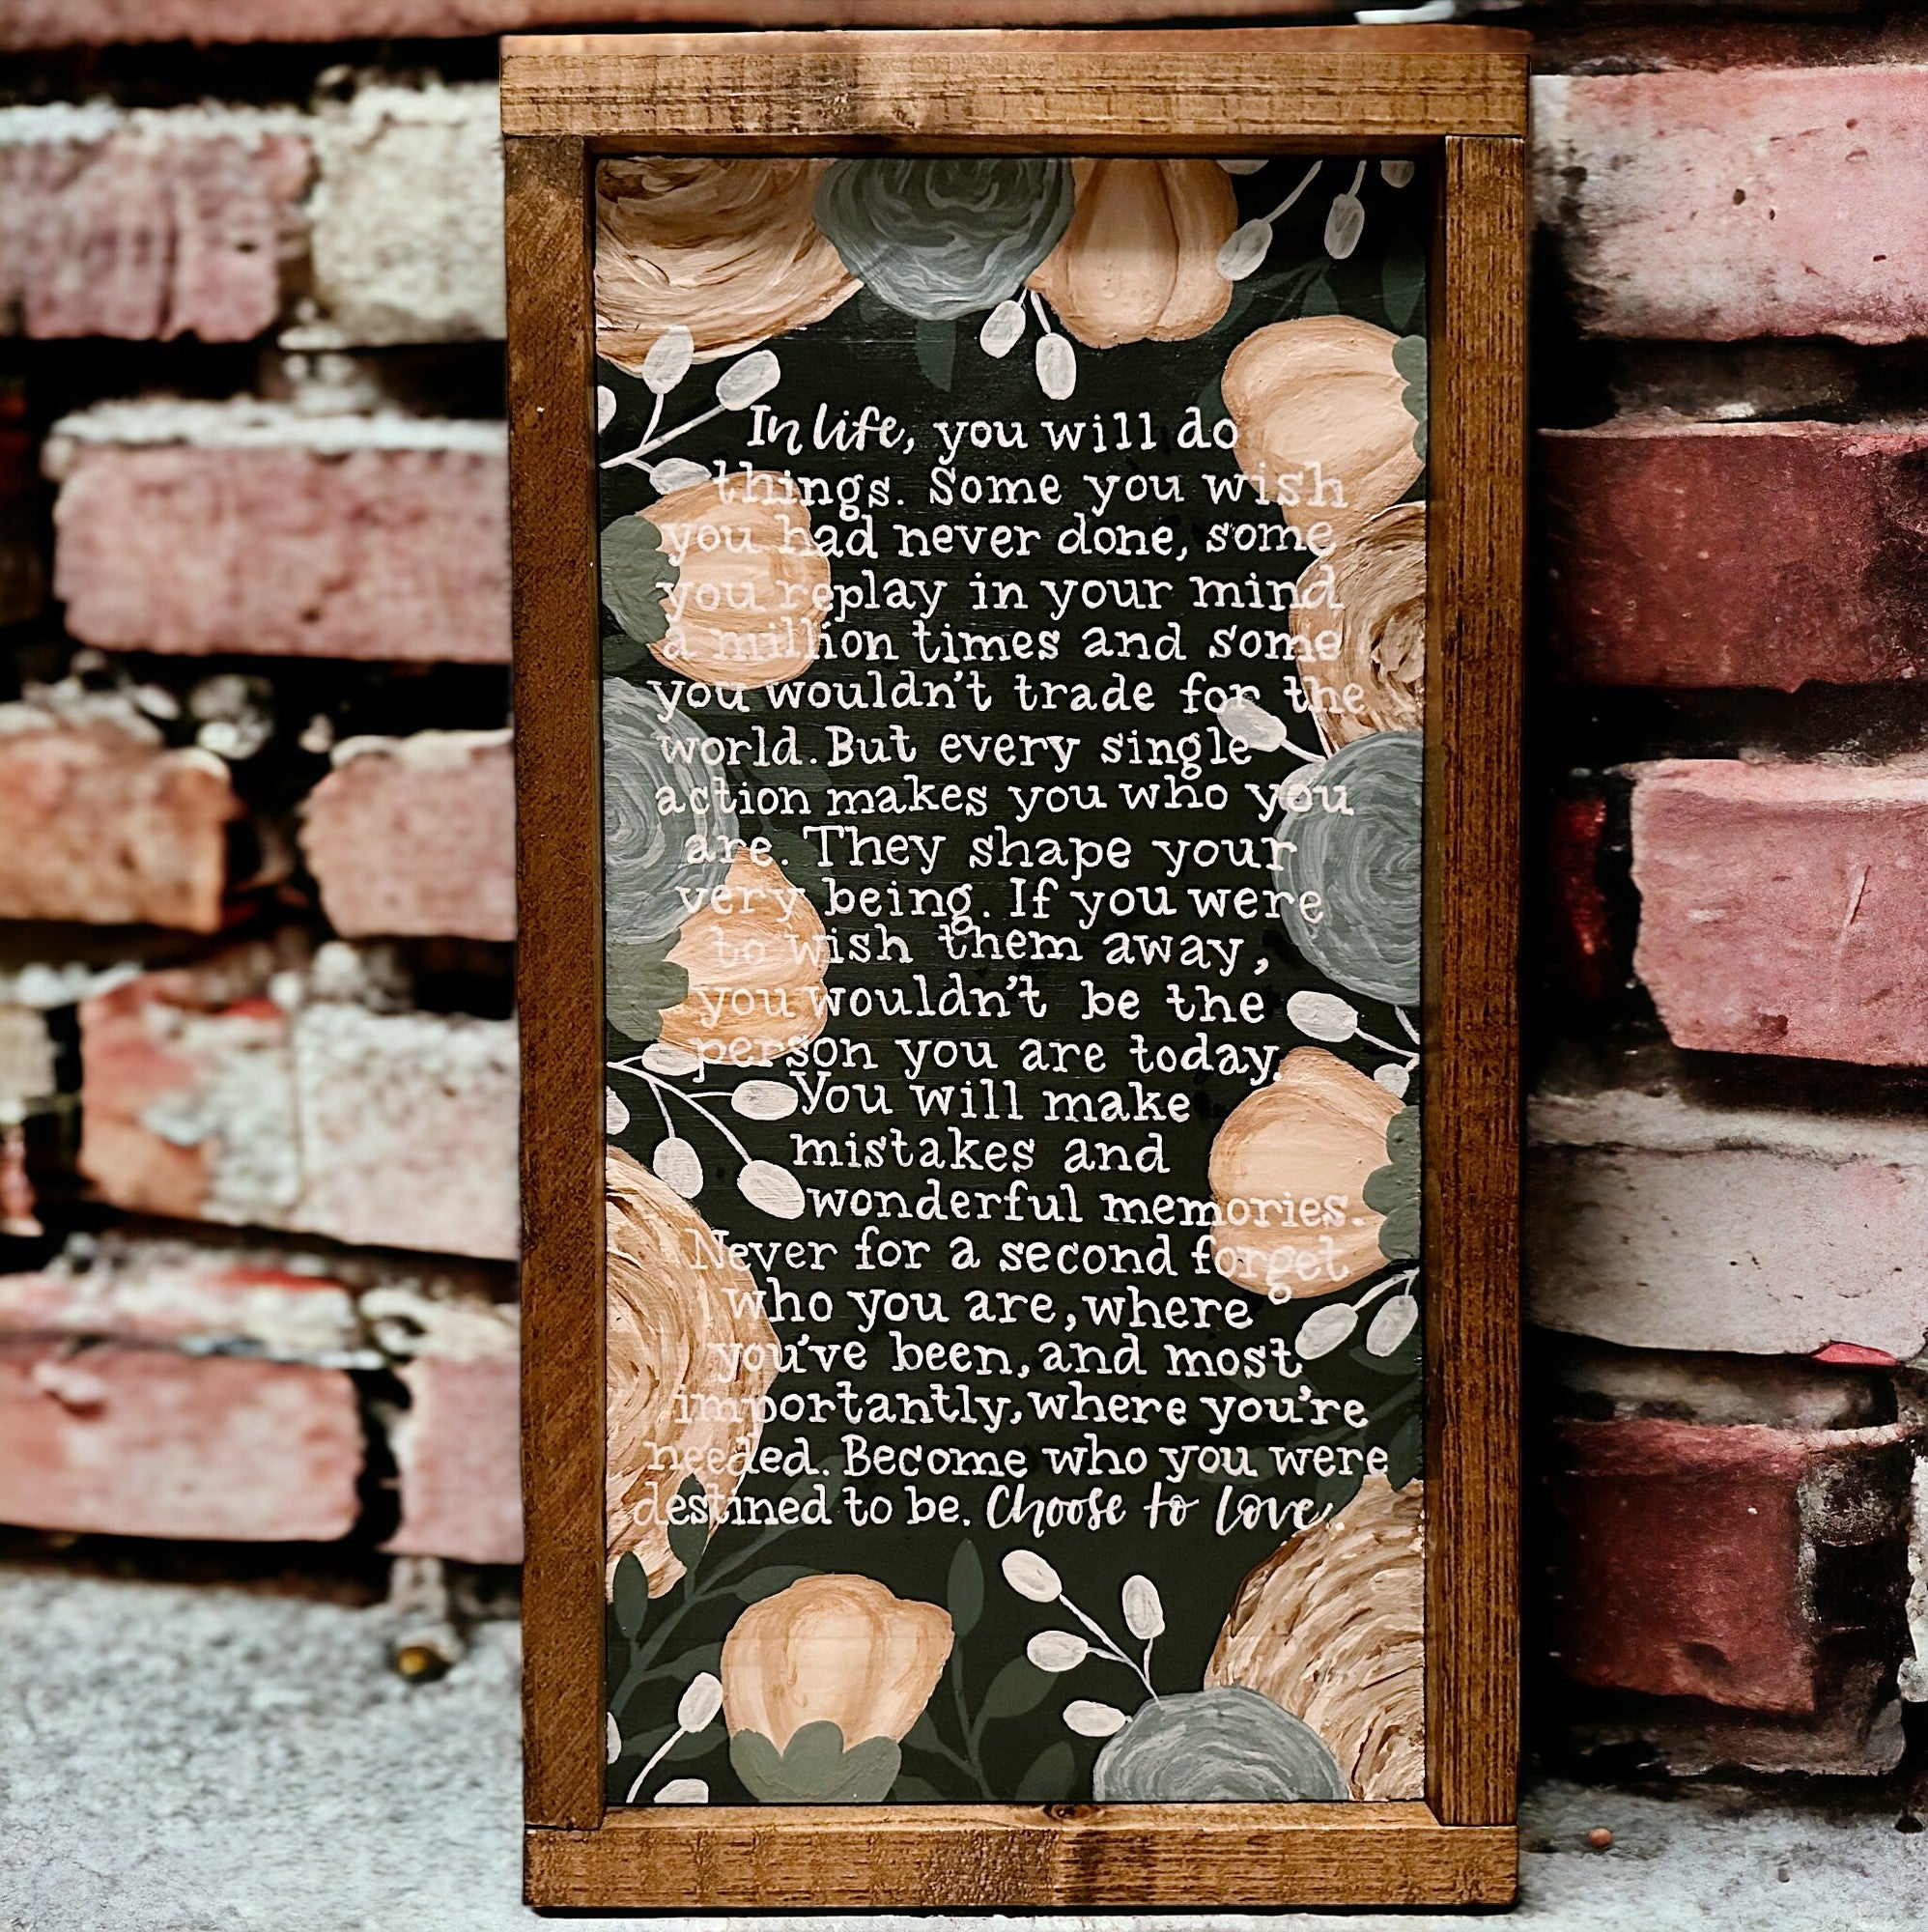 In life, you will do
things. Some you wish
you had never done, some
you replay in your mind
a million times and some
you wouldn't trade for the
world. But every single
action makes you who you
are. They shape your
very being. If you were
to wish them away,
you wouldn't be the
person you are today.
You will make
mistakes and
wonderful memories.
Never for a second forget
who you are, where
you've been, and most
importantly, where you're
needed. Become who you were
destined to be. Choose to love.